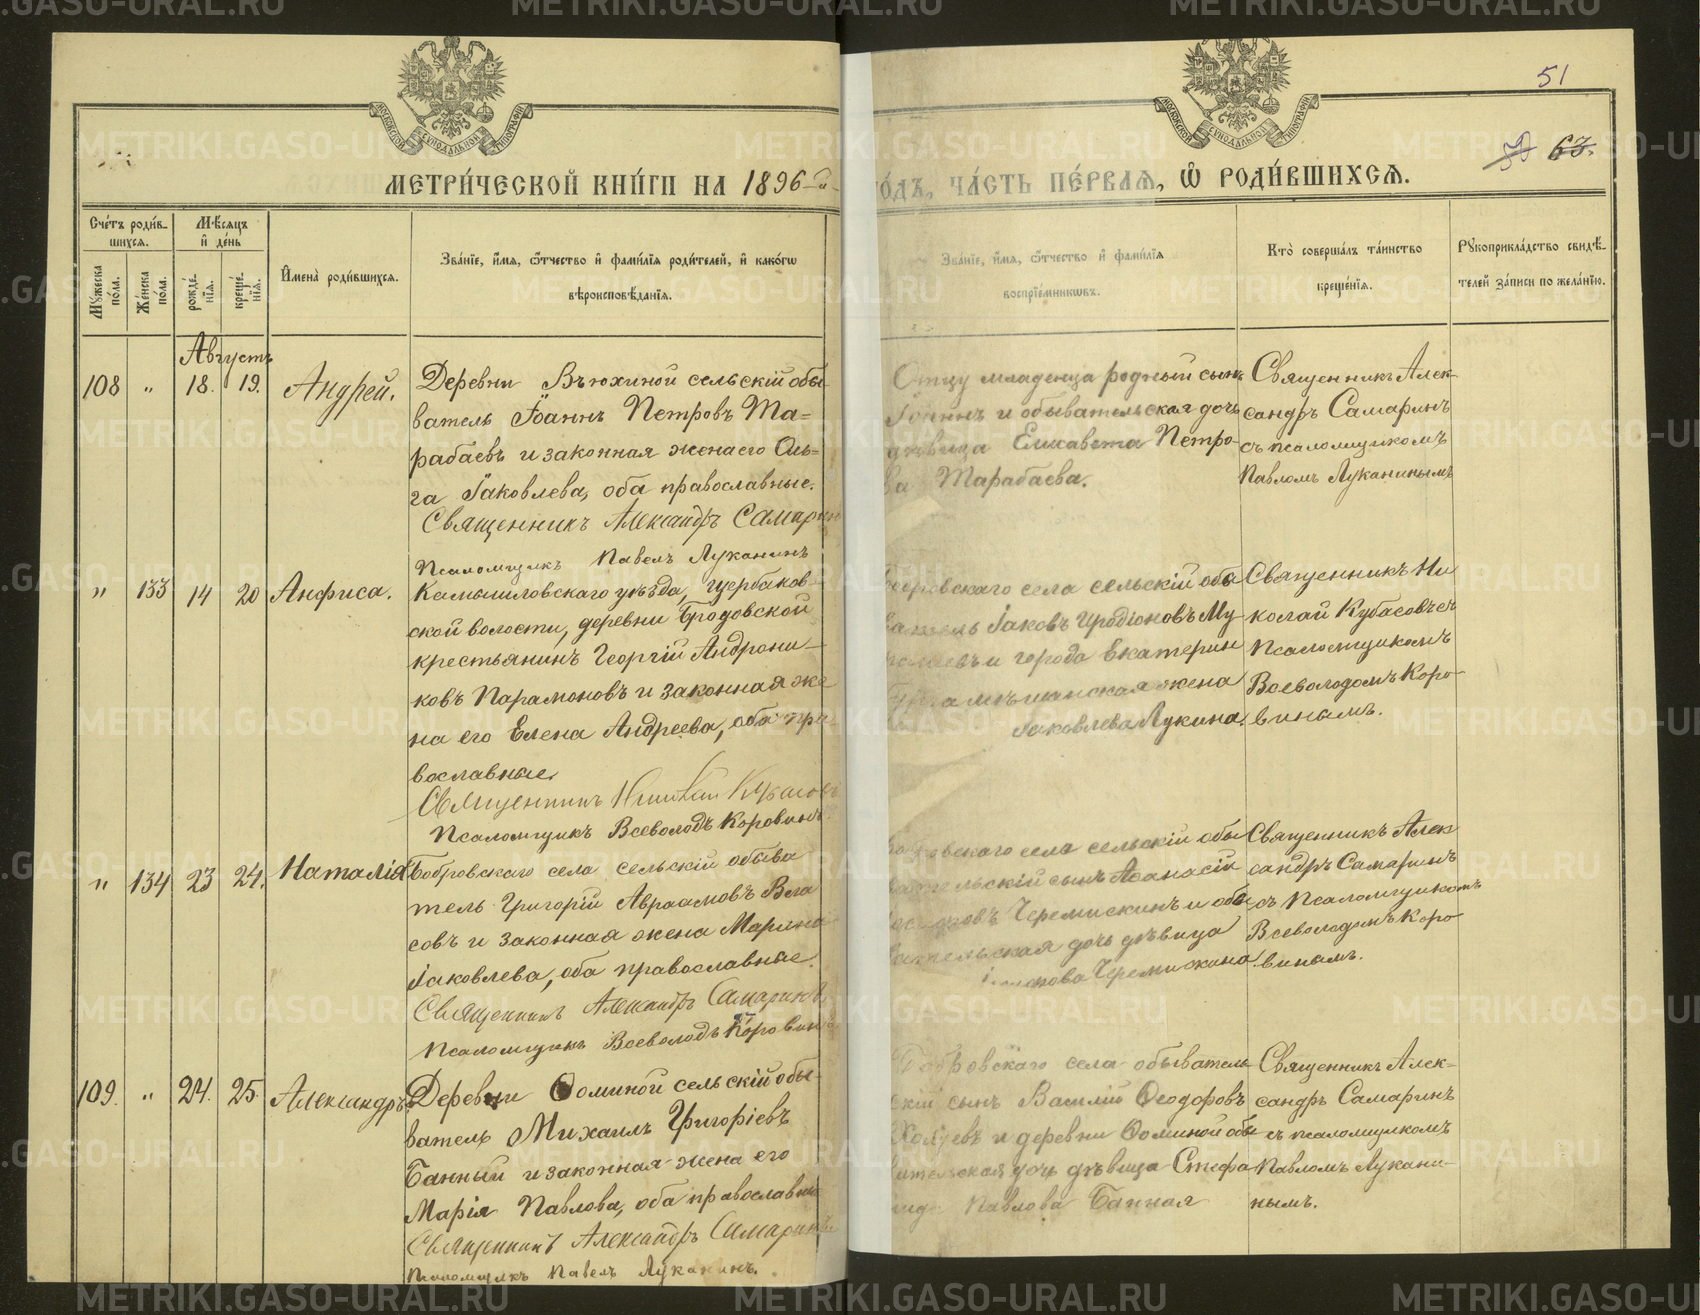 МОСКОВСКОЙ СѴНОДАЛЬНОЙ ТИПОГРАФІИ
МОСКОВСКОЙ СѴНОДАЛЬНОЙ ТИПОГРАФІИ
51
63.
МЕТРИ́ЧЕСКОЙ КНИ́ГИ НА 1896-й
ГО́ДЪ, ЧА́СТЬ ПЕ́РВАЯ, Ѡ РОДИ́ВШИХСЯ.
Сче́тъ роди́в-
шихся.
Мѣ́сяцъ
и҆ де́нь
Мꙋ́жеска
по́ла.
Же́нска
по́ла.
рожде́-
нїя.
креще́-
нїя.
И҆мена̀ роди́вшихся.
Зва́нїе, и҆́мя, ѻ҆́тчество и҆ фами́лїя роди́телей, и҆ како́гѡ
вѣроисповѣ́данїя.
Зва́нїе, и҆́мя, ѻ҆́тчество и҆ фами́лїя
воспрїе́мникѡвъ.
Кто̀ соверша́лъ та́инство
креще́нїя.
Рꙋкоприкла́дство свидѣ́-
телей за́писи по жела́нїю.
Августъ
108 „ 18. 19. Андрей.
Деревни Вьюхиной сельскій обы-
ватель Іоаннъ Петровъ Та=
рабаевъ и законная жена его Оль=
га Іаковлева, оба православные.
Священникъ Александръ Самаринъ
Псаломщикъ Павелъ Луканинъ
Отцу младенца родный сынъ
Іоаннъ и обывательская дочь
дѣвица Елисавета Петро-
ва Тарабаева.
Священникъ Алек-
сандръ Самаринъ
съ псаломщикомъ
Павломъ Луканинымъ
„ 133 14 20 Анфиса.
Камышловскаго уѣзда, Щербаков-
ской волости, деревни Бродовской
крестьянинъ Георгій Андрони-
ковъ Парамоновъ и законная же
на его Елена Андреева, оба пра-
вославные.
Священникъ Николай Кубасовъ
Псаломщикъ Всеволодъ Коровинъ
Бобровскаго села сельскій обы
ватель Іаковъ Иродіоновъ
и города Екатерин
жена
Іаковлева Лукина.
Священникъ Ни
колай Кубасовъ съ
Псаломщикомъ
Всеволодомъ Коро-
винымъ.
„ 134 23 24. Наталія
Бобровскаго села сельскій обыва
тель Григорій Авраамовъ Вла
совъ и законная жена Марина
Іаковлева, оба православные.
Священникъ Александръ Самаринъ
Псаломщикъ Всеволодъ Коровинъ
Бобровскаго села сельскій обы
вательскій сынъ Аѳанасій
Черемискинъ и обы
вательская дочь дѣвица
Черемискина
Священникъ Алек
сандръ Самаринъ
съ Псаломщикомъ
Всеволодомъ Коро-
винымъ.
109. „ 24. 25. Александръ
Деревни Ѳоминой сельскій обы-
ватель Михаилъ Григоріевъ
Банный и законная жена его
Марія Павлова, оба православные
Священникъ Александръ Самаринъ
Псаломщикъ Павелъ Луканинъ.
Бобровскаго села обыватель
скій сынъ Василій Ѳеодоровъ
и деревни Ѳоминой обы
вательская дочь дѣвица Стефа-
нида Павлова Банная
Священникъ Алек-
сандръ Самаринъ
съ псаломщикомъ
Павломъ Лукани-
нымъ.
METRIKI.GASO-URAL.RU